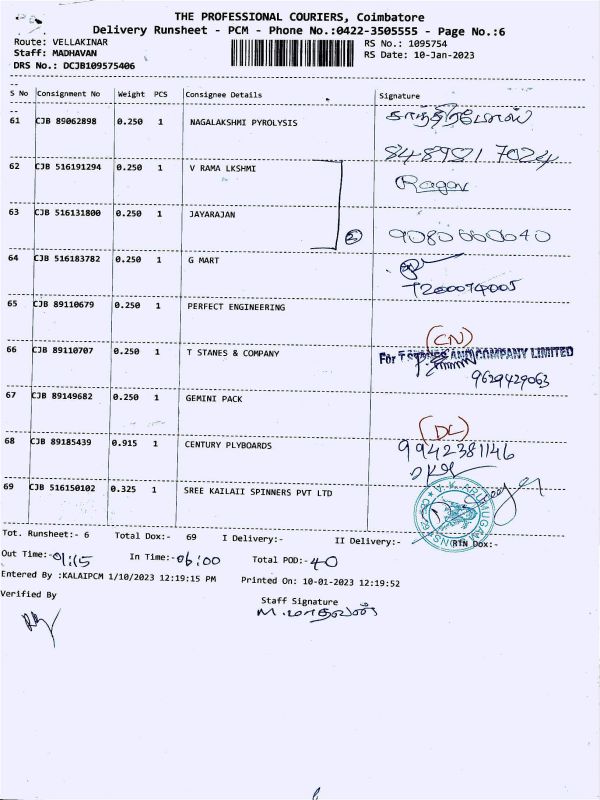 THE PROFESSIONAL COURIERS, Coimbatore
Delivery Runsheet - PCM - Phone No.:0422-3505555 - Page No.:6
Route: VELLAKINAR
RS No.: 1095754
Staff: MADHAVAN
RS Date: 10-Jan-2023
DRS No.: DCJB109575406
S No Consignment No Weight PCS Consignee Details Signature
61 CJB 89062898 0.250 1 NAGALAKSHMI PYROLYSIS
8489517024
62 CJB 516191294 0.250 1 V RAMA LKSHMI Ragav
63 CJB 516131800 0.250 1 JAYARAJAN
② 9080660640
64 CJB 516183782 0.250 1 G MART
7200074005
65 CJB 89110679 0.250 1 PERFECT ENGINEERING
(CN)
66 CJB 89110707 0.250 1 T STANES & COMPANY For T STANES AND COMPANY LIMITED
9629429063
67 CJB 89149682 0.250 1 GEMINI PACK
(DL)
68 CJB 89185439 0.915 1 CENTURY PLYBOARDS 9942381146
69 CJB 516150102 0.325 1 SREE KAILAII SPINNERS PVT LTD
Tot. Runsheet:- 6 Total Dox:- 69 I Delivery:- II Delivery:- RTN Dox:-
Out Time:- 01:15 In Time:- 06:00 Total POD:- 40
Entered By :KALAIPCM 1/10/2023 12:19:15 PM Printed On: 10-01-2023 12:19:52
Verified By
Staff Signature
M. மாதவன்